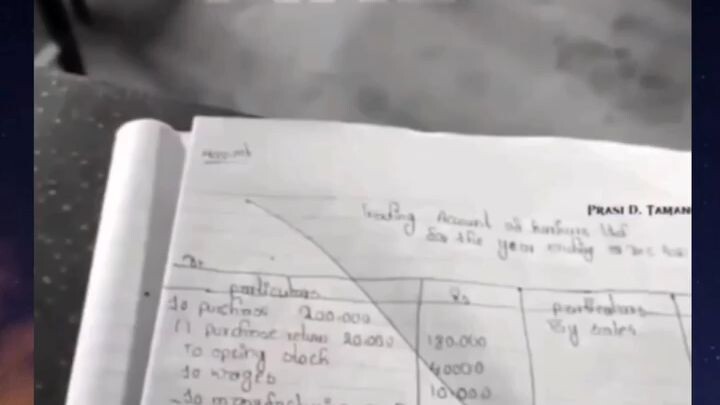 Account
PRASI D. TAMAN
Trading Account of
for the year ending
Dr.
particulars Rs particulars
To purchase 200.000 By sales
(-) purchase return 20.000 180.000
To opening stock 40000
To wages 10.000